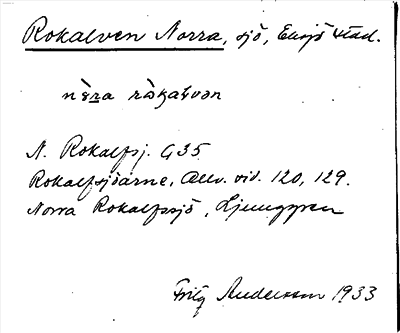 Rokalven Norra, sjö, Eksjö stad.
N. Rokalfsj. G35
Rokalfsjöarne, Allv. vid. 120, 129.
Norra Rokalfssjö, Ljunggren
Fritz Andersson 1933